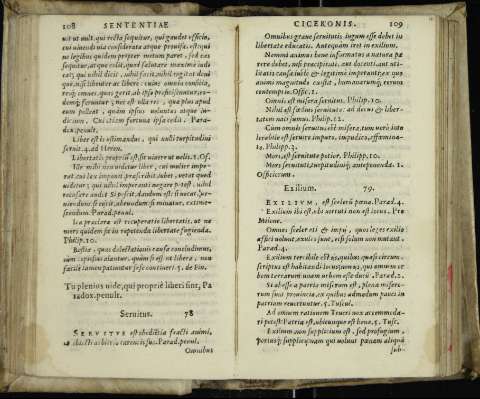 108 SENTENTIAE
uit ut uult. qui recta sequitur, qui gaudet officio,
cui uiuendi uia considerata atque prouisa est: qui
ne legibus quidem propter metum paret, sed eas
sequitur, atque colit, quod salutare maxime iudi
cat, qui nihil dicit, nihil facit, nihil cogitat deni
que, nisi libenter ac libere: cuius omnia consilia,
resque omnes, quas gerit, ab ipso proficiscuntur, eo-
demque feruntur, nec est ulla res, quae plus apud
eum polleat, quàm ipsius uoluntas atque iu-
dicium. Cui etiam fortuna ipsa cedit. Para-
dox. penult.
Liber est is existimandus, qui nulli turpitudini
seruit. 4. ad Heren.
Libertatis proprium est, sit uiuere ut uelis. 1. Of.
Ille mihi non uidetur liber, cui mulier impe-
rat. cui leges imponit, praescribit, iubet, uetat quod
uidetur, qui nihil imperanti negare potest, nihil
recusare audet. Si poscit, dandum est: si uocat,
ueniendum: si eiicit, abeundum: si minatur, extime-
scendum. Parad. penul.
Ita praeclara est recuperatio libertatis, ut ne
mors quidem sit in repetenda libertate fugienda.
Philip. 10.
Bestiae, quas delectationis causa concludimus,
cum copiosius alantur, quàm si essent liberae, non
facile tamen patiuntur sese contineri. 5. de Fin.
Tu plenius uide, qui propriè liberi sint, Pa
radox. penult.
Seruitus. 78
SERVITVS est obeditio fracti animi,
& abiecti, arbitrio carentis suo. Parad. penul.
Omnibus
CICERONIS. 109
Omnibus graue seruitutis iugum esse debet in
libertate educatis. Antequàm iret in exilium.
Nemini animus bene informatus a natura pa
rere debet, nisi praecipienti, aut docenti, aut uti-
litatis causa iuste & legitime imperanti: ex quo
animi magnitudo existit, humanarumque rerum
contemptio. Offic. 1.
Omnis est misera seruitus. Philip. 10.
Nihil est foedius seruitute: ad decus & liber-
tatem nati sumus. Philip. 12.
Cùm omnis seruitus est misera, tum uerò into
lerabile est seruire impuro, impudico, effoemina-
to. Philipp. 3.
Mors est seruitute potior. Philipp. 10.
Mors seruituti, turpitudinique anteponenda. 1.
Officicrum.
Exilium. 79.
EXILIVM, est sceleris poena. Parad. 4.
Exilium ibi est, ubi uirtuti non est locus. Pro
Milone.
Omnes scelerati & impij, quos leges exilio
affici uolunt, exules sunt, etsi solum non mutant.
Parad. 4.
Exilium terribile est iis, quibus quasi circum-
scriptus est habitandi locus: non iis, qui omnem or
bem terrarum unam urbem esse ducunt. Parad. 2.
Si abesse a patria miserum est, plenae misero-
rum sunt prouinciae, ex quibus admodum pauci in
patriam reuertuntur. 5. Tuscul.
Ad omnem rationem Teucri uox accommoda-
ri potest: Patria est, ubicunque est bene. 5. Tusc.
Exilium non supplicium est, sed perfugium,
portusque supplicij: nam qui uolunt poenam aliquā
sub-